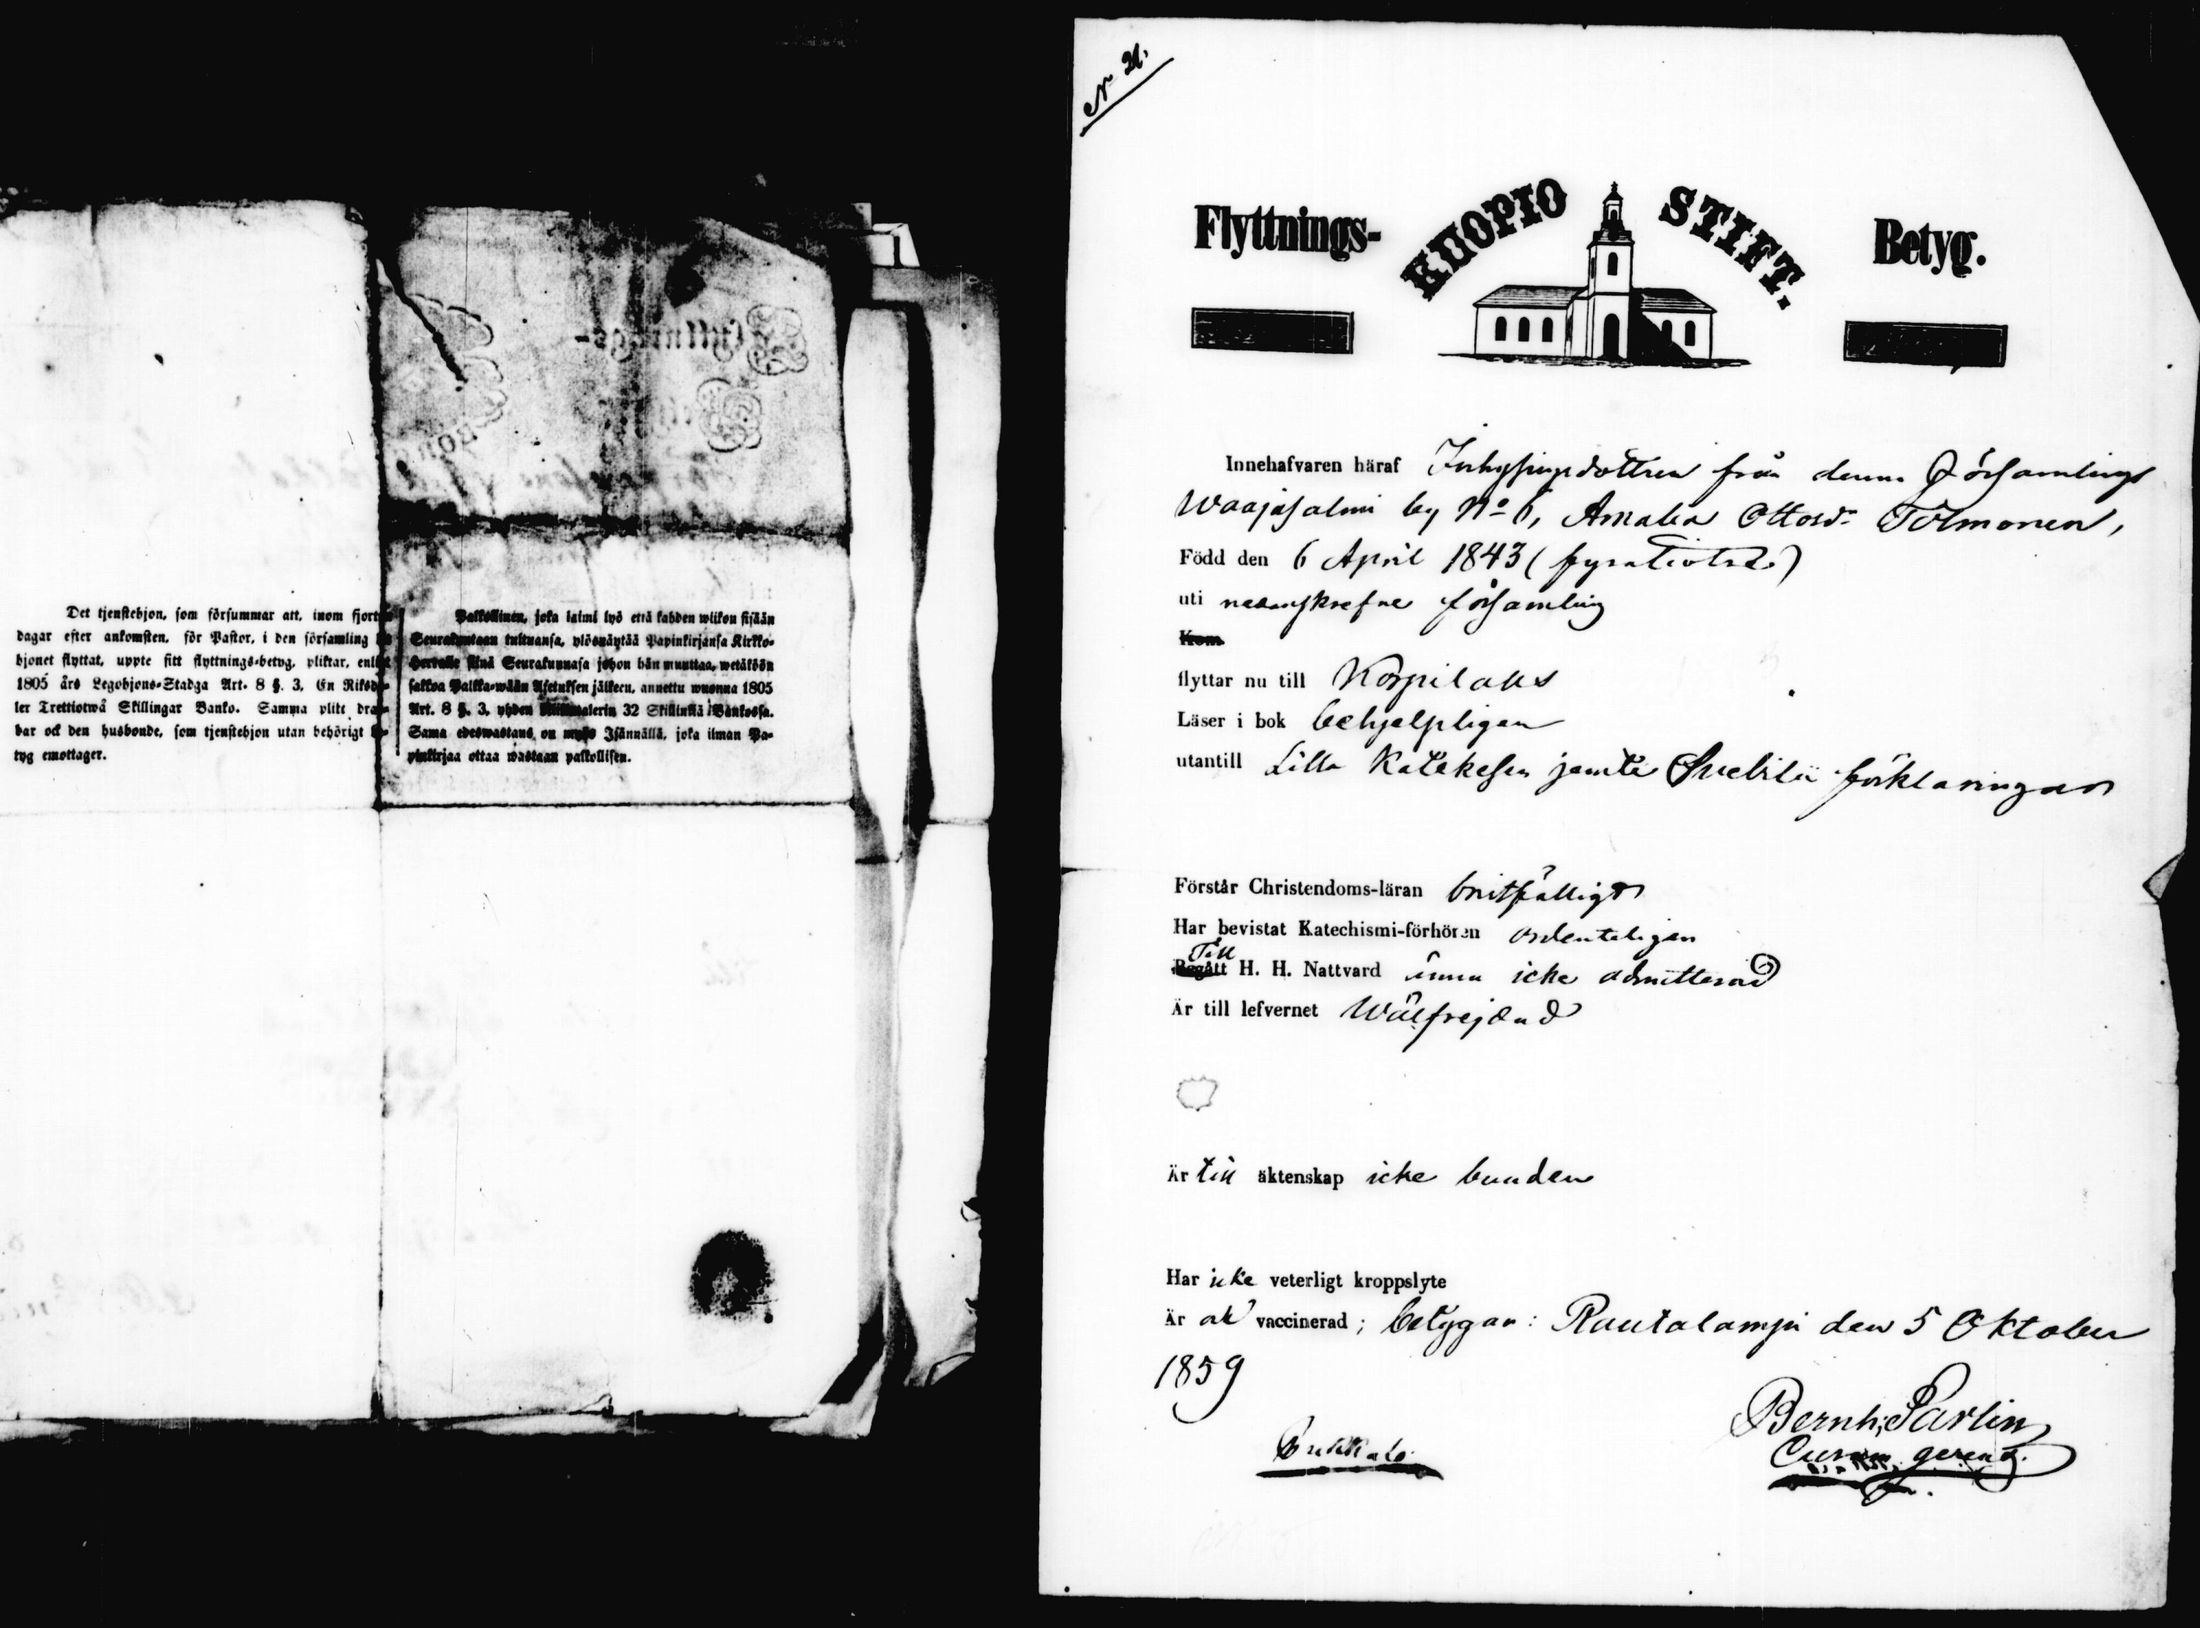 Det tjenstehjon, som försummar att, inom fjorton
dagar efter ankomsten, för Pastor, i den församling
hjonet flyttat, uppte sitt flyttnings-betyg, pliktar, enligt
1805 års Legohjons-Stadga Art. 8 §. 3, En Riksda-
ler Trettiotwå Skillingar Banko. Samma plikt dra-
bar ock den husbonde, som tjenstehjon utan behörigt be-
tyg emottager.
Palkollinen, joka laimi lyö että kahden wiikon sisään
Seurakuntaan tultuansa, ylösnäytää Papinkirjansa Kirkko-
Herralle siinä Seurakunnasa johon hän muuttaa, wetäköön
sakkoa Palkka-wään Asetuksen jälkeen, annettu wuonna 1805
Art. 8 §. 3, yhden Riikintalerin 32 Skillinkiä Bankossa.
Sama edeswastaus on myös Isännällä, joka ilman Pa-
pinkirjaa ottaa wastaan palkollisen.
N 21.
Flyttnings- KUOPIO STIFT. Betyg.
Innehafvaren häraf Inhysingsdottren från denna Församlings
Waajasalmi by No 6, Amalia Ottosdr Tolmonen,
Född den 6 April 1843 (fyratiotre)
uti nedanskrefne församling
Kom
flyttar nu till Korpilaks
Läser i bok behjelpligen
utantill Lilla Katekesen jemte Svebilii förklaringar
Förstår Christendoms-läran bristfälligt
Har bevistat Katechismi-förhören ordenteligen
Till
Begått H. H. Nattvard ännu icke admitterad
Är till lefvernet Wälfrejdad
Är till äktenskap icke bunden
Har icke veterligt kroppslyte
Är ock vaccinerad; betygar: Rautalampi den 5 Oktober
1859
Bernh. Parlin
Curam gerens.